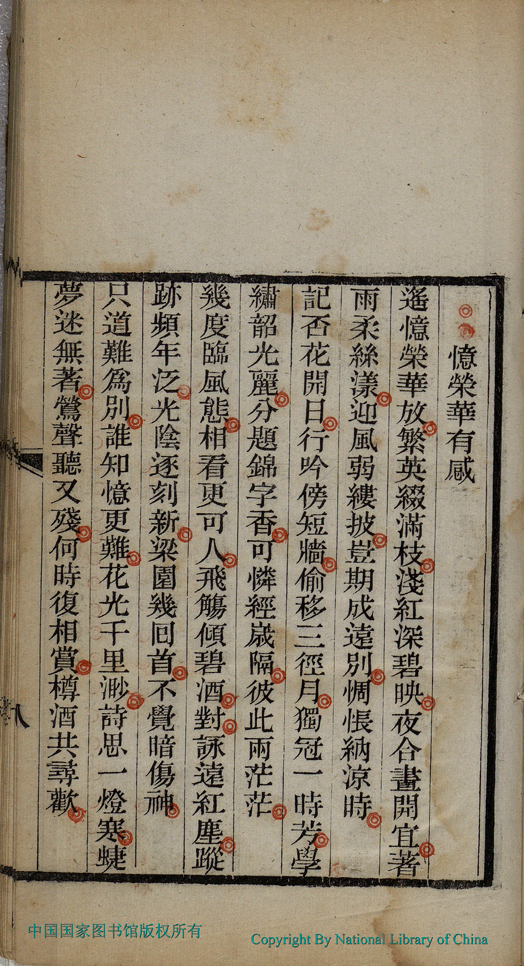 憶榮華有感
遙憶榮華放繁英綴滿枝淺紅深碧映夜合晝開宜著
雨柔絲漾迎風弱縷披豈期成遠別惆悵納涼時
記否花開日行吟傍短牆偷移三徑月獨冠一時芳學
繡韶光麗分題錦字香可憐經歲隔彼此兩茫茫
幾度臨風態相看更可人飛觴傾碧酒對詠遠紅塵蹤
跡頻年泛光陰逐刻新梁園幾回首不覺暗傷神
只道難為別誰知憶更難花光千里渺詩思一燈寒蜨
夢迷無著鶯聲聽又殘何時復相賞樽酒共尋歡
八
中国国家图书馆版权所有
Copyright By National Library of China